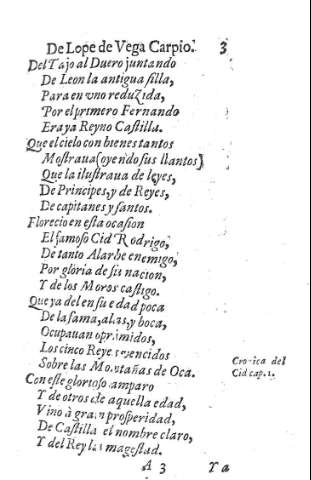 De Lope de Vega Carpio. 3
Del Tajo al Duero juntando
De Leon la antigua ſilla,
Para en vno reduZida,
Por el primero Fernando
Era ya Reyno Caſtilla.
Que el cielo con bienes tantos
Moſtraua (oyendo ſus llantos)
Que la iluſtraua de leyes,
De Principes, y de Reyes,
De capitanes y ſantos.
Florecio en eſta ocaſion
El famoſo Cid Rodrigo,
De tanto Alarbe enemigo,
Por gloria de ſu nacion,
Y de los Moros caſtigo.
Que ya del en ſu edad poca
De la fama, alas, y boca,
Ocupauan oprimidos,
Los cinco Reyes vencidos
Sobre las Montañas de Oca.
Cronica del
Cid cap. 1.
Con eſte glorioſo amparo
Y de otros de aquella edad,
Vino à gran proſperidad,
De Caſtilla el nombre claro,
Y del Rey la mageſtad.
A 3 Ya